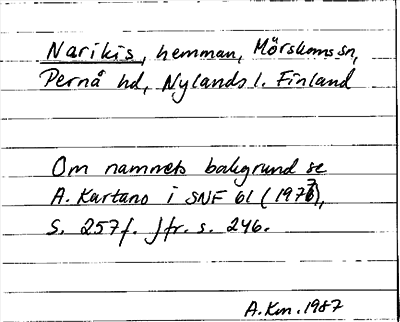 Narikis, hemman, Mörskoms sn,
Pernå hd, Nylands l. Finland
Om namnets bakgrund se
A. Kartano i SNF 61 (1977),
S. 257f. Jfr. s. 246.
A.Km. 1987